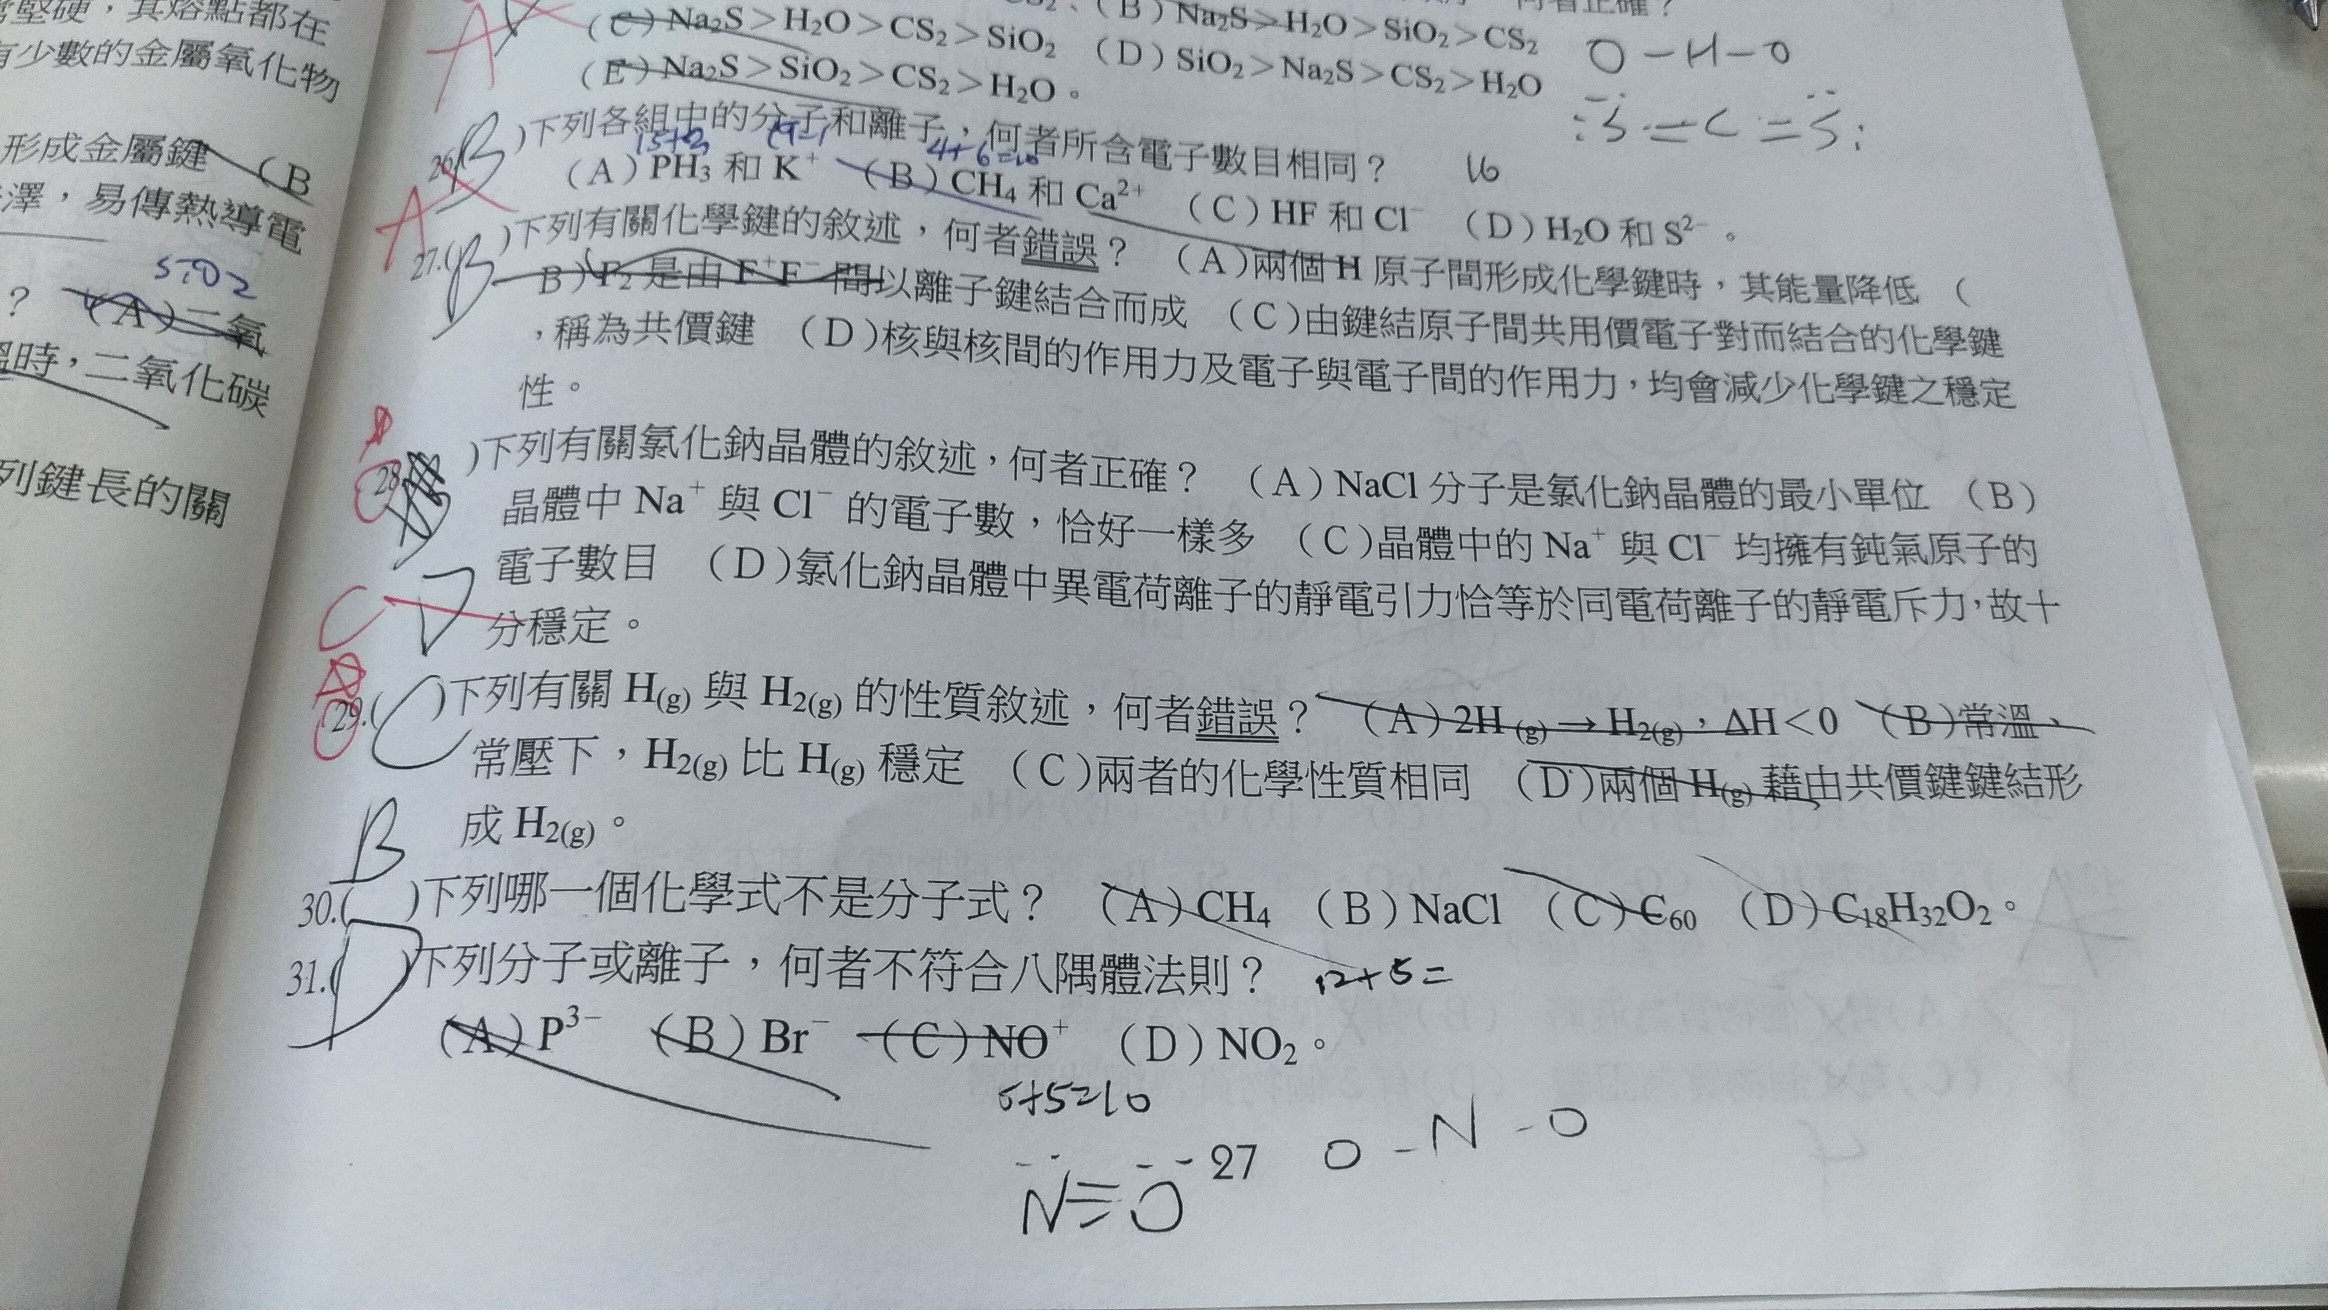 常堅硬，其熔點都在
有少數的金屬氧化物
形成金屬鍵 (B
澤，易傳熱導電
SiO2
？ (A)二氧
溫時，二氧化碳
列鍵長的關
(B)Na₂S＞H₂O＞SiO₂＞CS₂
(C)Na₂S＞H₂O＞CS₂＞SiO₂ (D)SiO₂＞Na₂S＞CS₂＞H₂O
(E)Na₂S＞SiO₂＞CS₂＞H₂O。
A
O-H-O
:S=C=S:
26.(B)下列各組中的分子和離子，何者所含電子數目相同？ 16
15+3 19-1 4+6=10
(A)PH₃ 和 K⁺ (B)CH₄ 和 Ca²⁺ (C)HF 和 Cl⁻ (D)H₂O 和 S²⁻。
A
27.(B)下列有關化學鍵的敘述，何者錯誤？ (A)兩個 H 原子間形成化學鍵時，其能量降低 (
B)F₂ 是由 F⁺F⁻ 間以離子鍵結合而成 (C)由鍵結原子間共用價電子對而結合的化學鍵
，稱為共價鍵 (D)核與核間的作用力及電子與電子間的作用力，均會減少化學鍵之穩定
性。
28. )下列有關氯化鈉晶體的敘述，何者正確？ (A)NaCl 分子是氯化鈉晶體的最小單位 (B)
晶體中 Na⁺ 與 Cl⁻ 的電子數，恰好一樣多 (C)晶體中的 Na⁺ 與 Cl⁻ 均擁有鈍氣原子的
電子數目 (D)氯化鈉晶體中異電荷離子的靜電引力恰等於同電荷離子的靜電斥力，故十
分穩定。
C D
29.(C)下列有關 H(g) 與 H₂(g) 的性質敘述，何者錯誤？ (A)2H(g)→H₂(g)，ΔH＜0 (B)常溫、
常壓下，H₂(g) 比 H(g) 穩定 (C)兩者的化學性質相同 (D)兩個 H(g) 藉由共價鍵鍵結形
成 H₂(g)。
B
30.( )下列哪一個化學式不是分子式？ (A)CH₄ (B)NaCl (C)C₆₀ (D)C₁₈H₃₂O₂。
31.(D)下列分子或離子，何者不符合八隅體法則？ 12+5=
(A)P³⁻ (B)Br⁻ (C)NO⁺ (D)NO₂。
5+5=10
27
N≡O
O-N-O